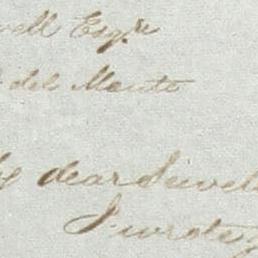 well Esqre
del Monte
My dear Sewell
I wrote